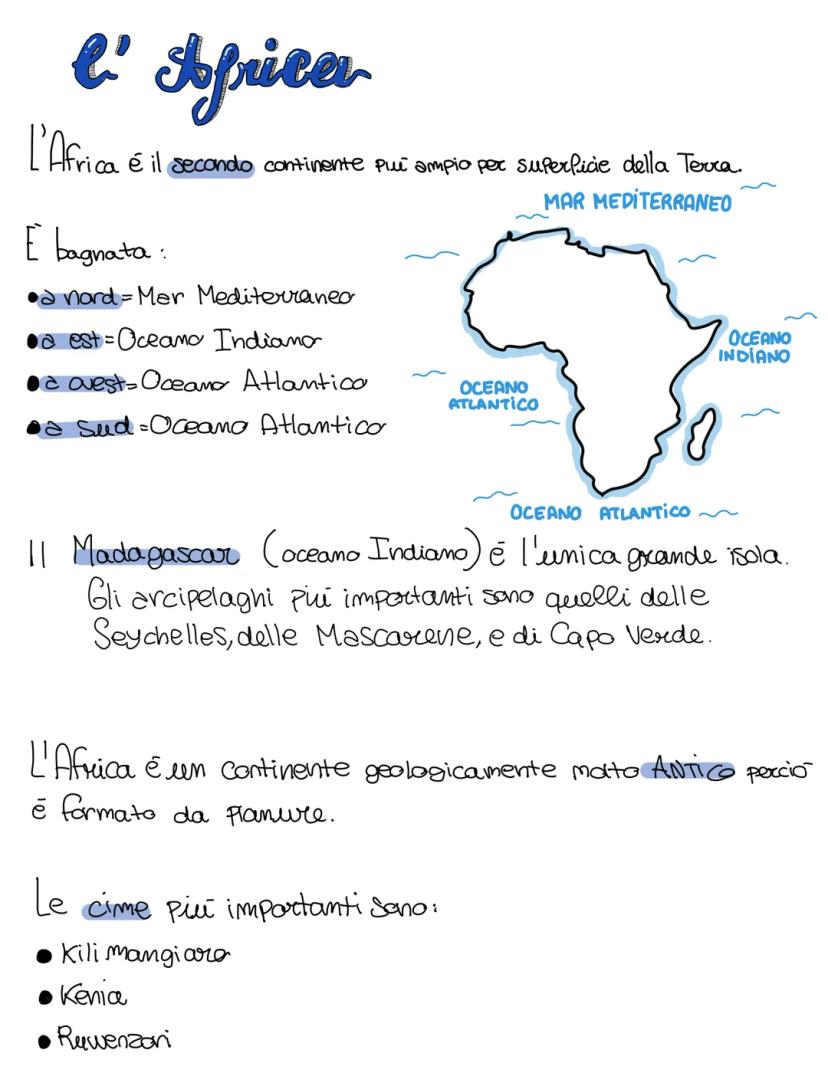 l'Africa
L'Africa é il secondo continente più ampio per superficie della Terra.
MAR MEDITERRANEO
È bagnata:
•a nord=Mar Mediterraneo
•a est=Oceano Indiano
•a ovest=Oceano Atlantico
•a sud=Oceano Atlantico
OCEANO
INDIANO
OCEANO
ATLANTICO
OCEANO ATLANTICO
Il Madagascar (oceano Indiano) é l'unica grande isola.
Gli arcipelaghi più importanti sono quelli delle
Seychelles, delle Mascarene, e di Capo Verde.
L'Africa é un continente geologicamente molto ANTICO perciò
é formato da pianure.
Le cime più importanti sono:
• Kilimangiaro
• Kenia
• Ruwenzori